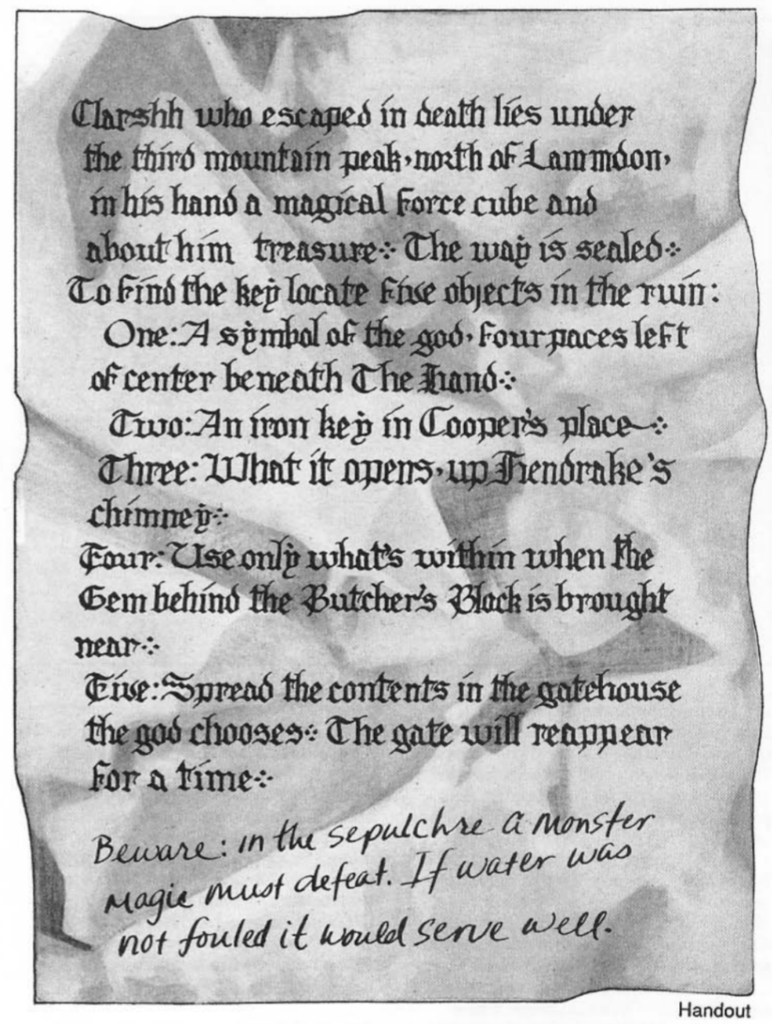 Clarshh who escaped in death lies under
the third mountain peak, north of Lammdon,
in his hand a magical force cube and
about him treasure⁘ The way is sealed⁘
To find the key locate five objects in the ruin:
One: A symbol of the god, four paces left
of center beneath The Hand⁘
Two: An iron key in Cooper's place⁘
Three: What it opens, up Hendrake's
chimney⁘
Four: Use only what's within when the
Gem behind the Butcher's Block is brought
near⁘
Five: Spread the contents in the gatehouse
the god chooses⁘ The gate will reappear
for a time⁘
Beware: in the sepulchre a monster
magic must defeat. If water was
not fouled it would serve well.
Handout